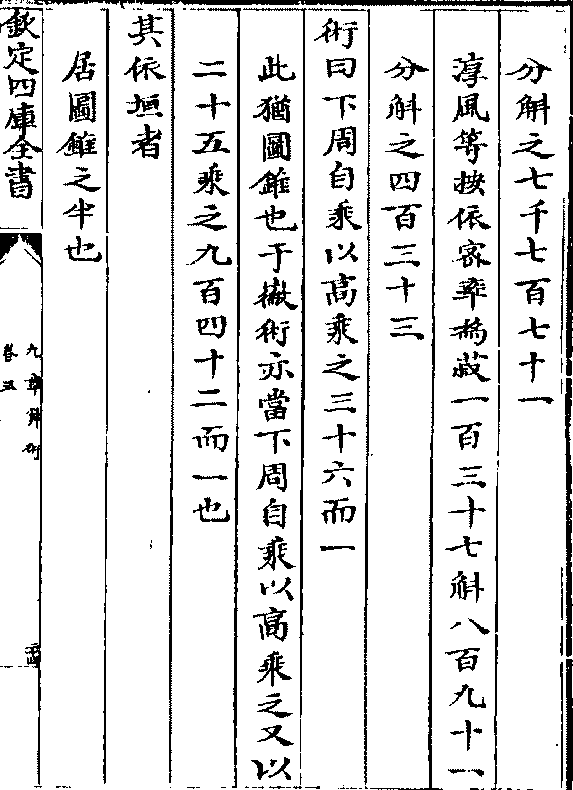 分斛之七千七百七十一
淳風等按依密率為藏一百三十七斛八百九十一
分斛之四百三十三
術曰下周自乘以髙乘之三十六而一
此猶圎錐也于𡽪術亦當下周自乘以髙乘之又以
二十五乘之九百四十二而一也
其依垣者
居圎錐之半也
欽定四庫全書
九章算術
卷五